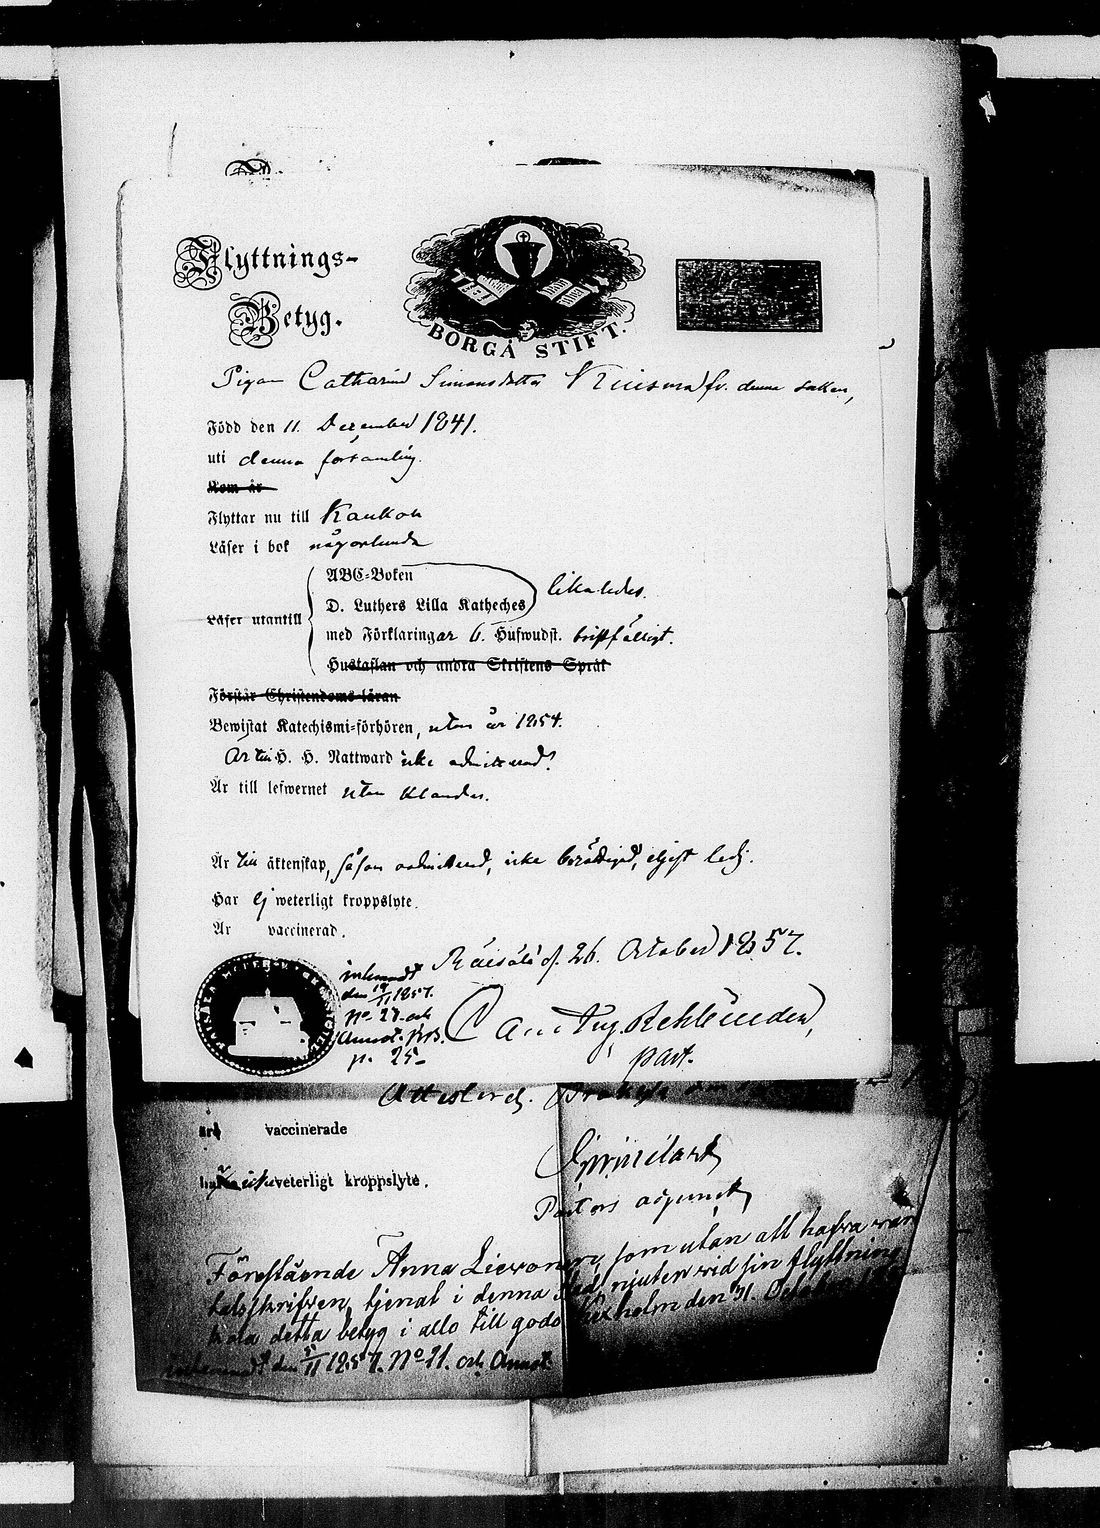 Flyttnings-
Betyg.
BORGÅ STIFT.
Pigan Catharina Simonsdotter fr. denna socken,
Född den 11. December 1841.
uti denna församling.
Kom år
Flyttar nu till Kaukola
Läser i bok någorlunda
ABC-Boken
D. Luthers Lilla Katheches likaledes.
Läser utantill
med Förklaringar 6. Hufwudst. bristfälligt.
Hustaflan och andra Skriftens Språk
Förstår Christendoms-läran
Bewistat Katechismi-förhören, utom år 1854.
Är till H. H. Nattward icke admitterad.
Är till lefwernet utan klander.
Är till äktenskap, såsom oadmitterad, icke berättigad, eljest ledig.
Har ej weterligt kroppslyte.
Är vaccinerad.
Räisälä d. 26. October 1857.
inlemnadt
den 19/11 1857.
No 27. och
Annot. K.B.
p. 25
past.
Attesterar
äro vaccinerade
hafwa icke veterligt kroppslyte.
Pastors adjunct
Förestående Anna som utan att hafva varit
talsskrifven, tjenat i denna Stad, njuter vid sin flyttning
hela detta betyg i allo till godo. den 31. October
den 5/11 1857. No 21. och Annot.